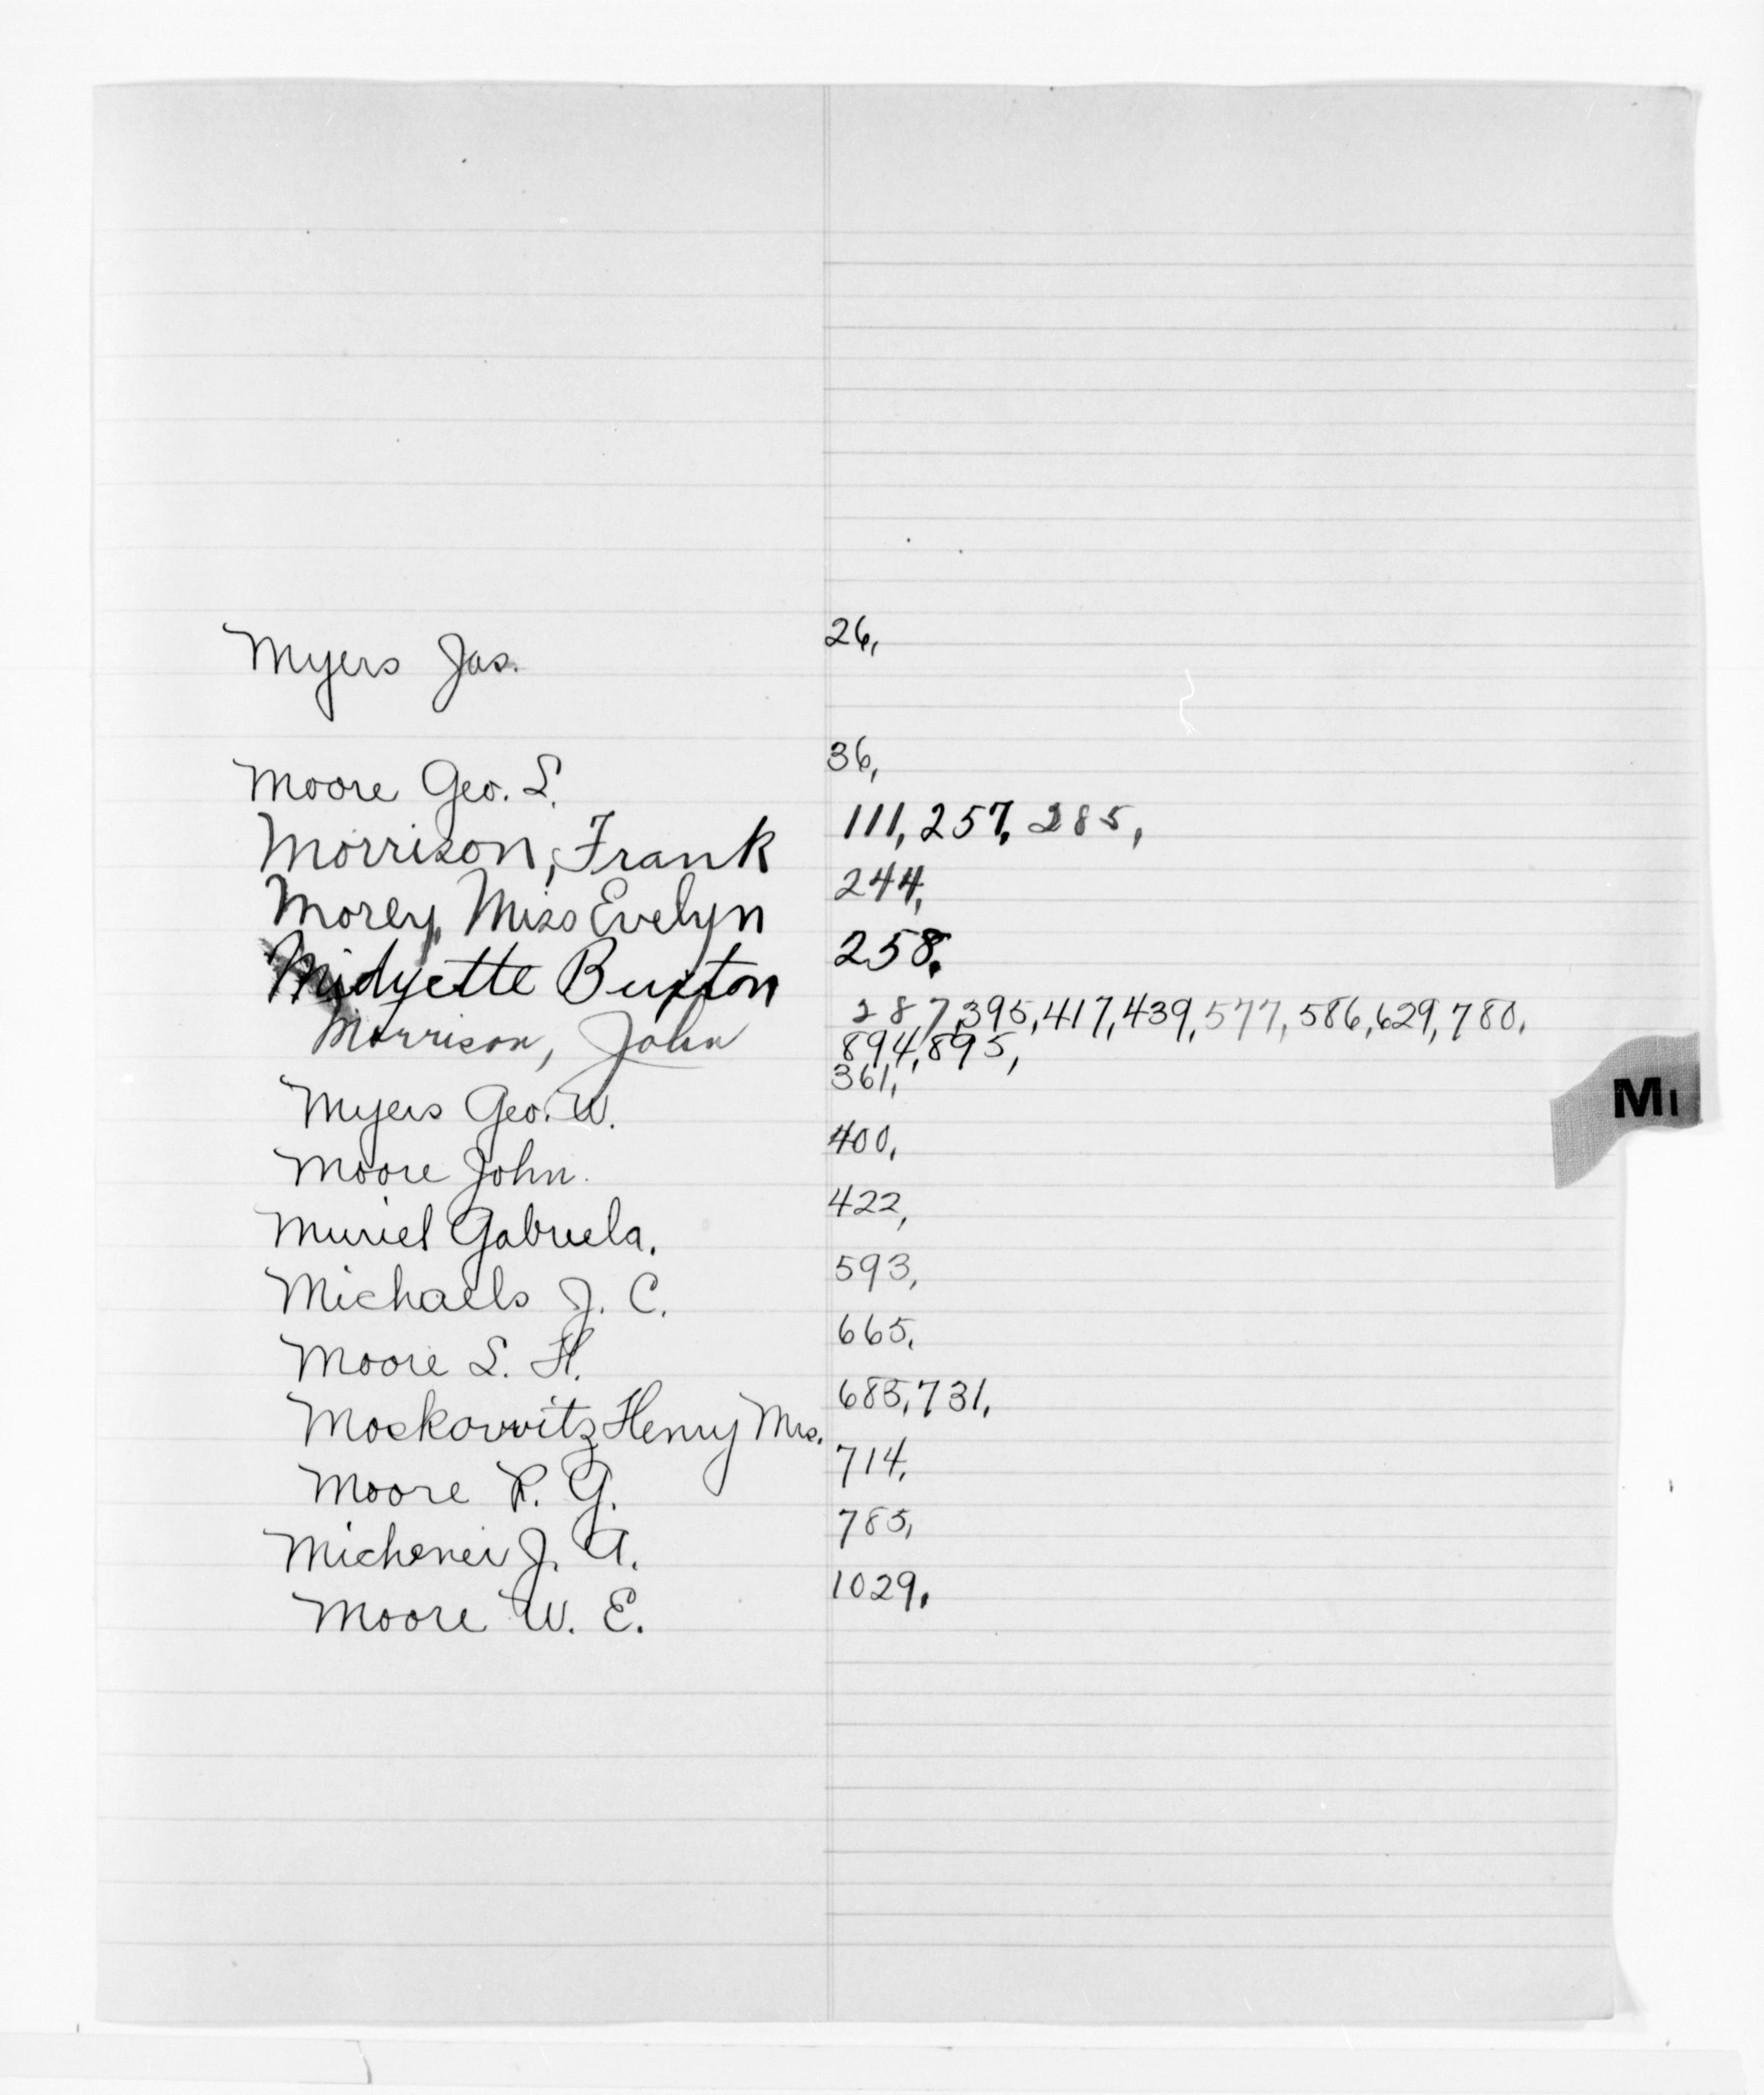 Myers Jas. 26,
Moore Geo. S. 36,
Morrison, Frank 111, 257, 285,
Morey, Miss Evelyn 244,
Midyette Buxton 258,
Morrison, John 287, 395, 417, 439, 577, 586, 629, 780,
894, 895,
Myers Geo. W. 361,
Moore John. 400,
Muriel Gabruela. 422,
Michaels J. C. 593,
Moore S. H. 665,
Moskowitz Henry Mrs. 685, 731,
Moore R. G. 714,
Michener J. A. 785,
Moore W. E. 1029,
Mi